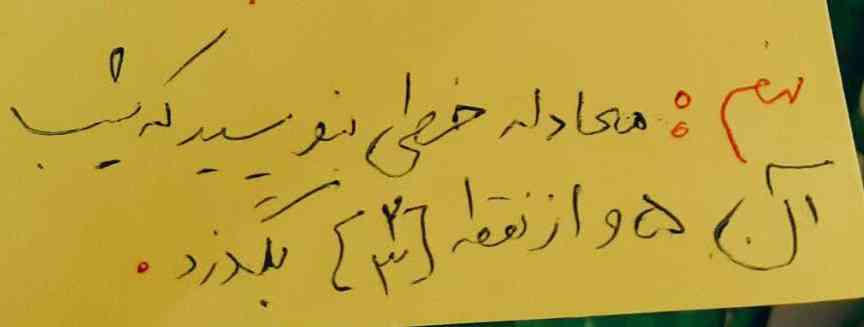 نهم : معادله خطی بنویسید که شیب
آن ۵ و از نقطه [۲ ۳] بگذرد .